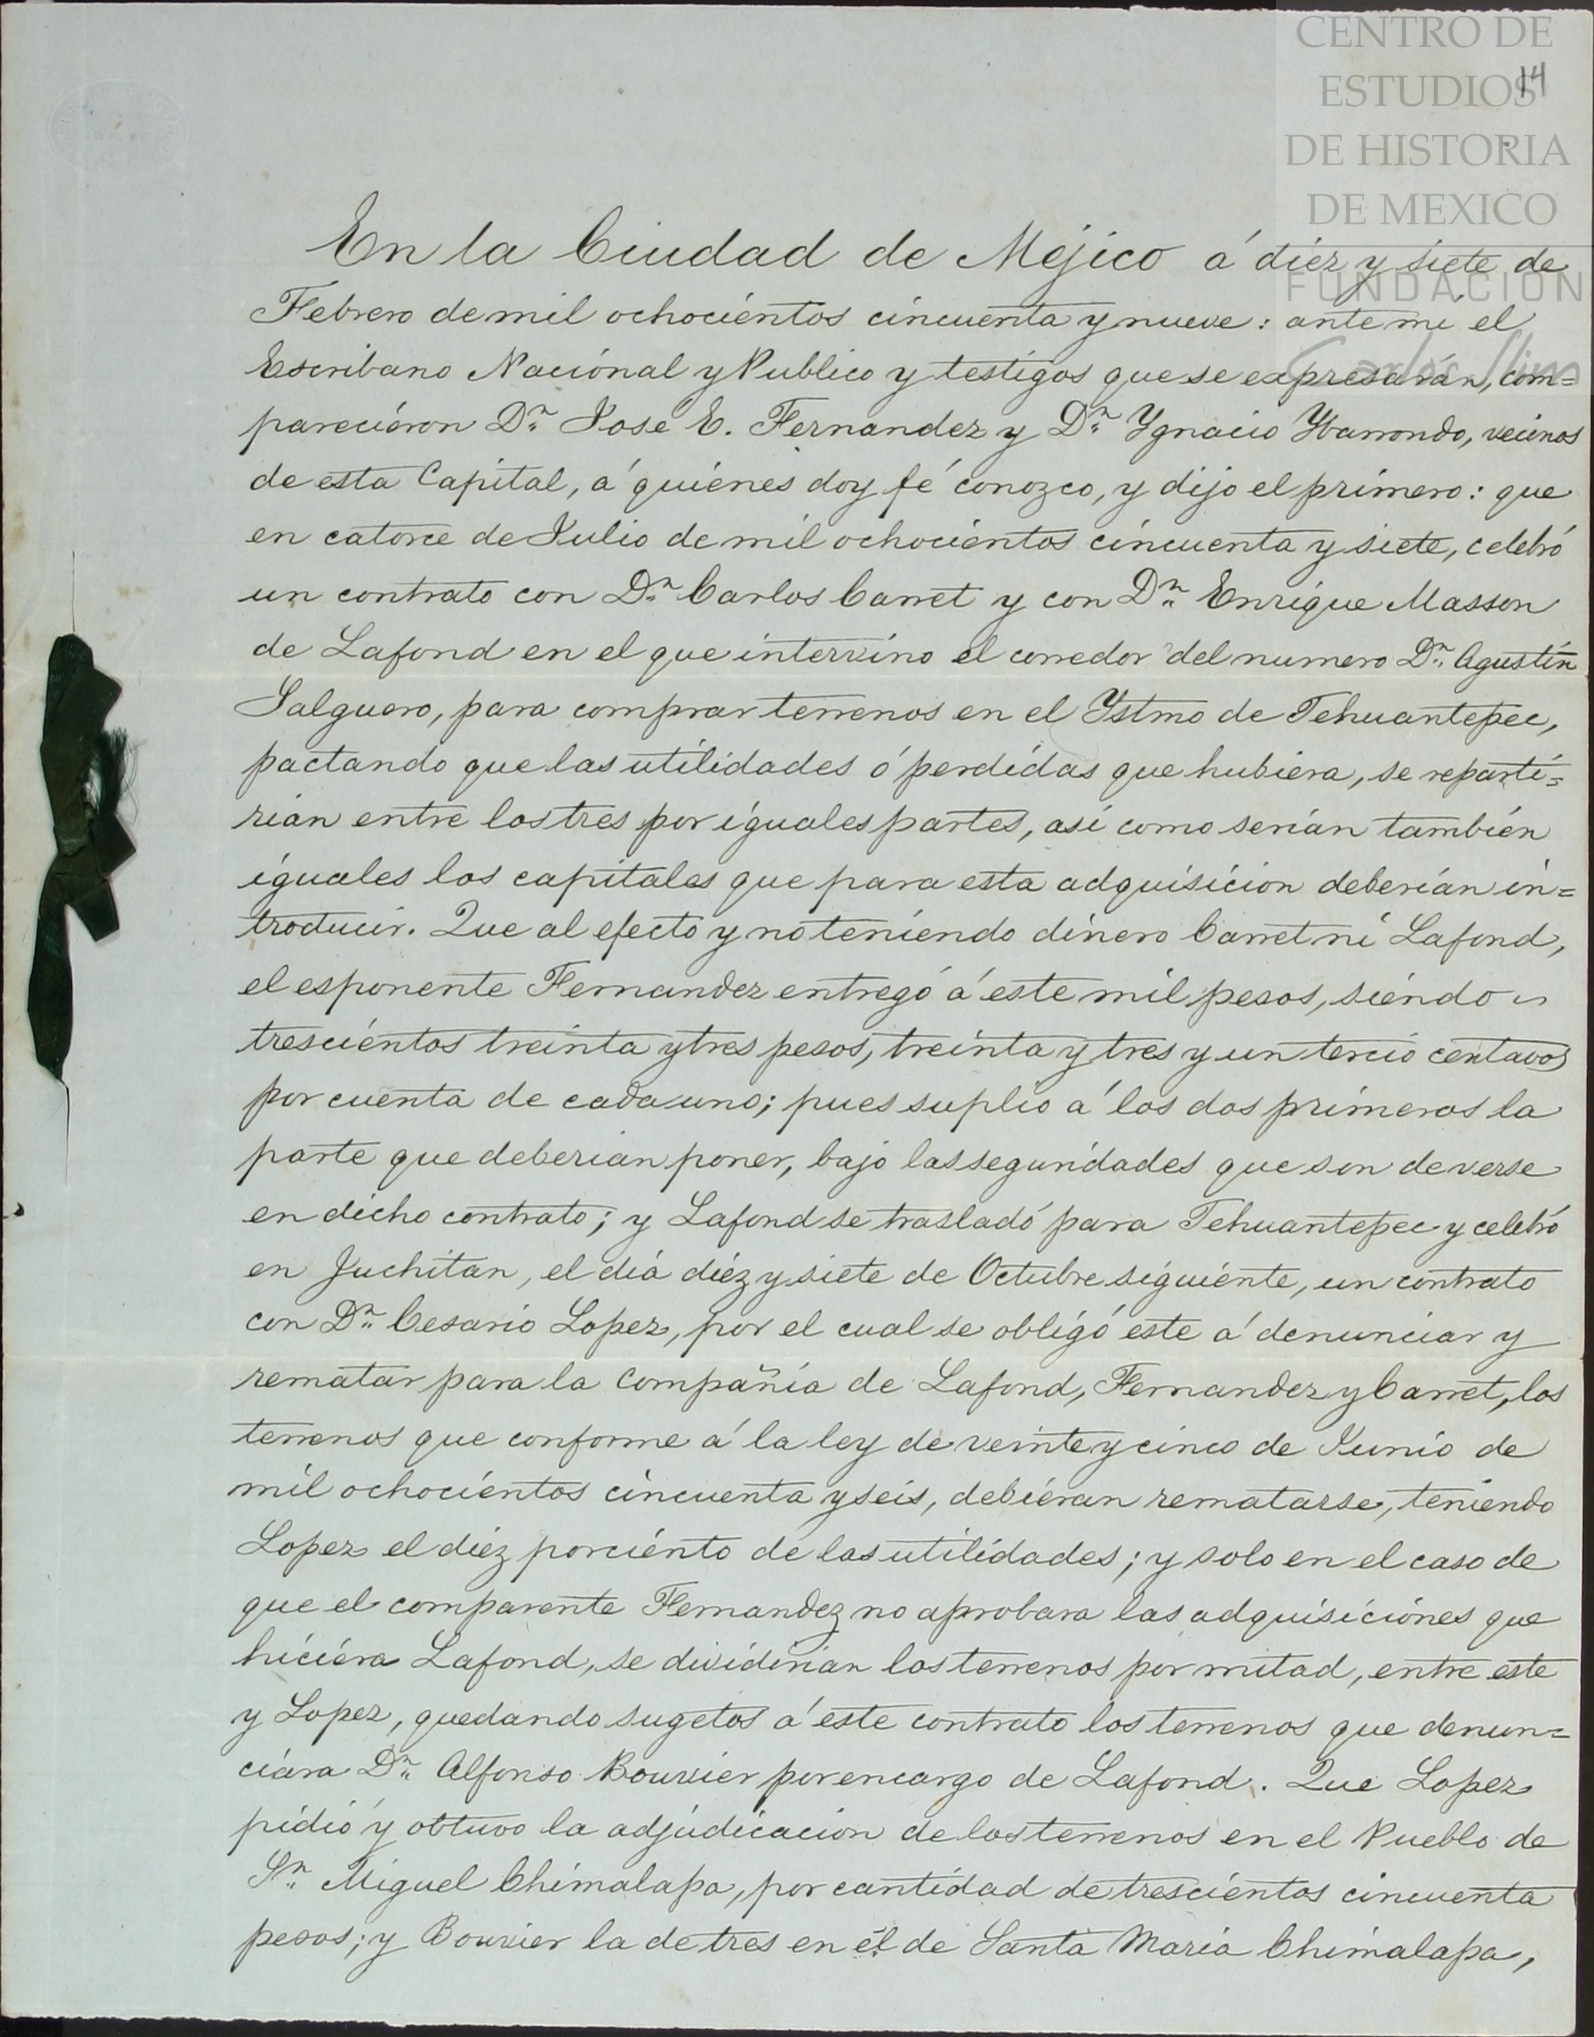 CENTRO DE
ESTUDIOS
DE HISTORIA
DE MEXICO
FUNDACION
Carlos Slim
14
En la Ciudad de Méjico á diez y siete de
Febrero de mil ochocientos cincuenta y nueve: ante mi el
Escribano Nacional y Publico y testigos que se expresarán, com=
parecieron Dn. Jose E. Fernandez y Dn. Ygnacio Ybarrondo, vecinos
de esta Capital, á quienes doy fé conozco, y dijo el primero: que
en catorce de Julio de mil ochocientos cincuenta y siete, celebró
un contrato con Dn. Carlos Carret y con Dn. Enrique Masson
de Lafond en el que intervino el corredor del numero Dn. Agustin
Salguero, para comprar terrenos en el Ystmo de Tehuantepec,
pactando que las utilidades ó perdidas que hubiera, se reparti=
rian entre los tres por iguales partes, asi como serian tambien
iguales los capitales que para esta adquisicion deberian in=
troducir. Que al efecto y no teniendo dinero Carret ni Lafond,
el esponente Fernandez entregó á este mil pesos, siendo
trescientos treinta y tres pesos, treinta y tres y un tercio centavos
por cuenta de cada uno; pues suplio á los dos primeros la
parte que deberian poner, bajo las seguridades que son de verse
en dicho contrato; y Lafond se trasladó para Tehuantepec y celebró
en Juchitan, el dia diez y siete de Octubre siguiente, un contrato
con Dn. Cesario Lopez, por el cual se obligó este á denunciar y
rematar para la Compañia de Lafond, Fernandez y Carret, los
terrenos que conforme á la ley de veinte y cinco de Junio de
mil ochocientos cincuenta y seis, debieran rematarse, teniendo
Lopez el diez por ciento de las utilidades; y solo en el caso de
que el comparente Fernandez no aprobara las adquisiciones que
hiciera Lafond, se dividirian los terrenos por mitad, entre este
y Lopez, quedando sugetos á este contrato los terrenos que denun=
ciara Dn. Alfonso Bouvier por encargo de Lafond. Que Lopez
pidió y obtuvo la adjudicacion de los terrenos en el Pueblo de
Sn. Miguel Chimalapa, por cantidad de trescientos cincuenta
pesos; y Bouvier la de tres en él de Santa Maria Chimalapa,